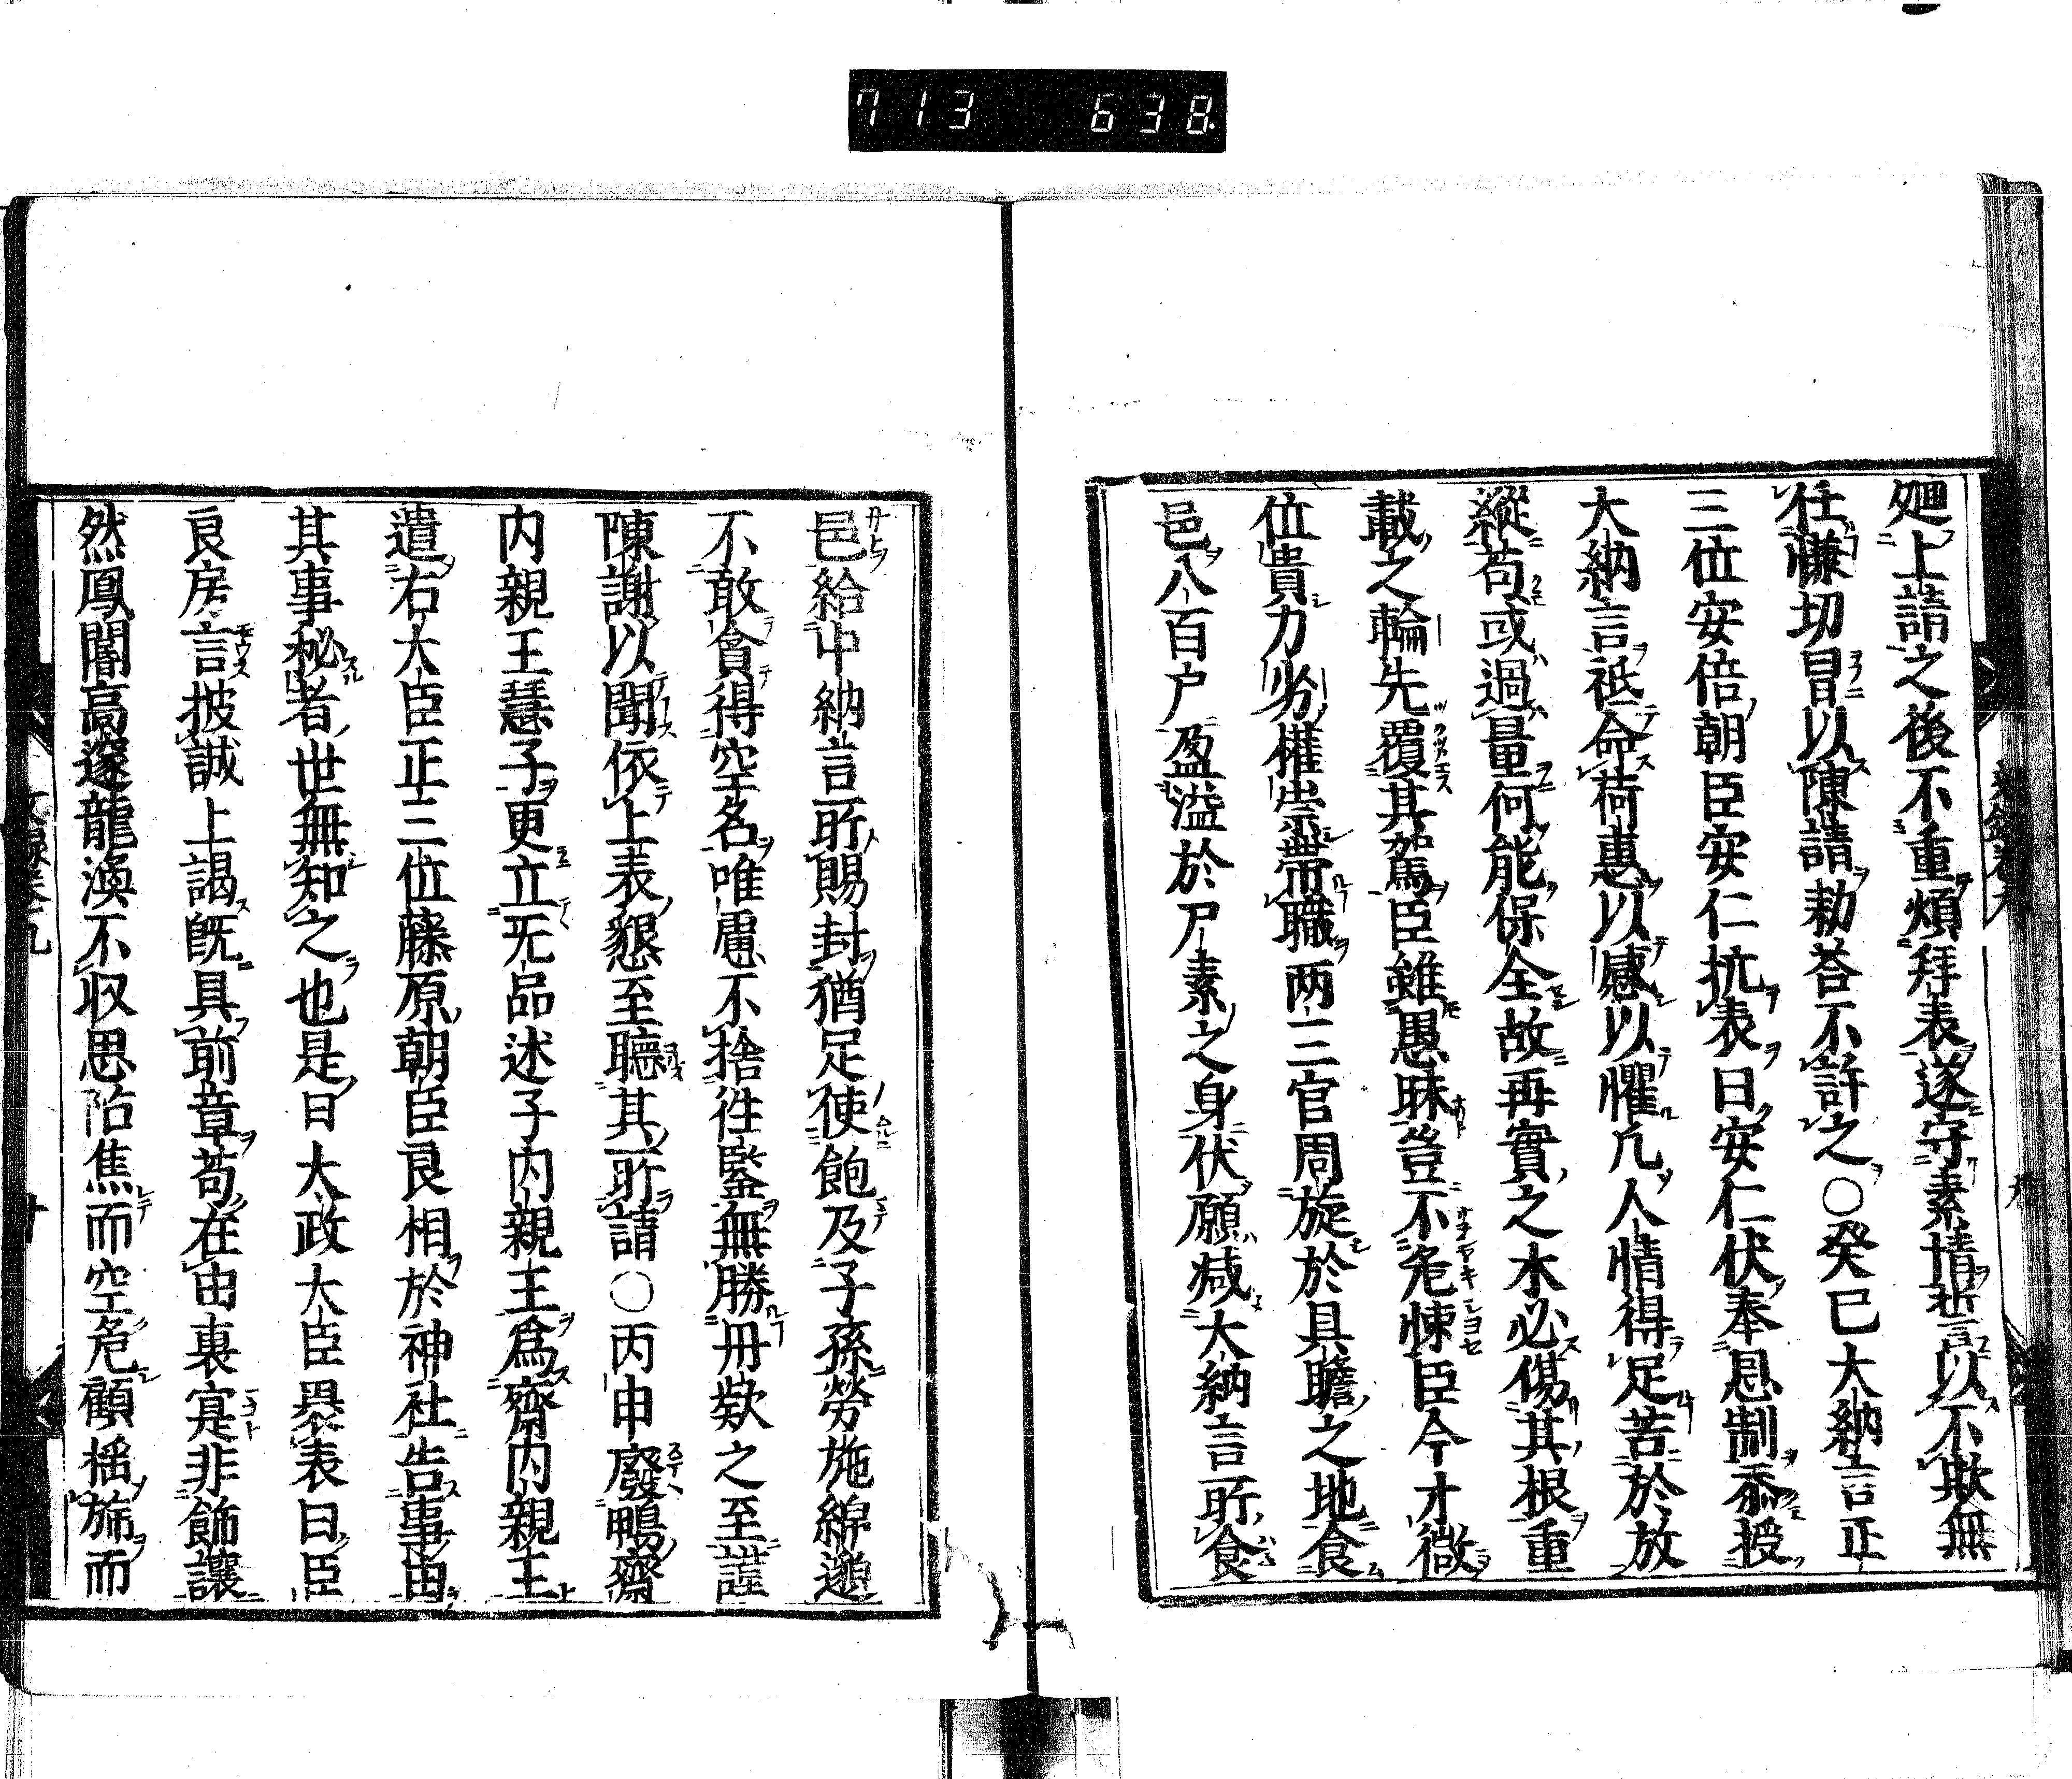 713 638
廻上請之後不重煩拜表遂守素情悲言以不欺無
任慊切冒以陳請勅荅不許之○癸巳大納言正
三位安倍朝臣安仁抗表曰安仁伏奉恩制忝授
大納言祗命荷惠以感以懼凢人情得足苦於放
縱苟或過量何能保全故再實之木必傷其根重
載之輪先覆其駕臣雖愚昧豈不危悚臣今才微
位貴力劣權崇帶職两三官周旋於具瞻之地食
邑八百户盈溢於尸素之身伏願减大納言所食
邑給中納言所賜封猶足使飽及子孫勞施綿邈
不敢貪得空名唯慮不捨徃鑒無勝冊欵之至謹
陳謝以聞依上表懇至聽其所請○丙申廢鴨齋
内親王慧子更立无品述子内親王爲齋内親王
遣右大臣正三位藤原朝臣良相於神社告事由
其事秘者世無知之也是日大政大臣㬥表曰臣
良房言披誠上謁旣具前章苟在由裏寔非飾讓
然鳳闇高邃龍渙不収思陷焦而空危顧榣旆而